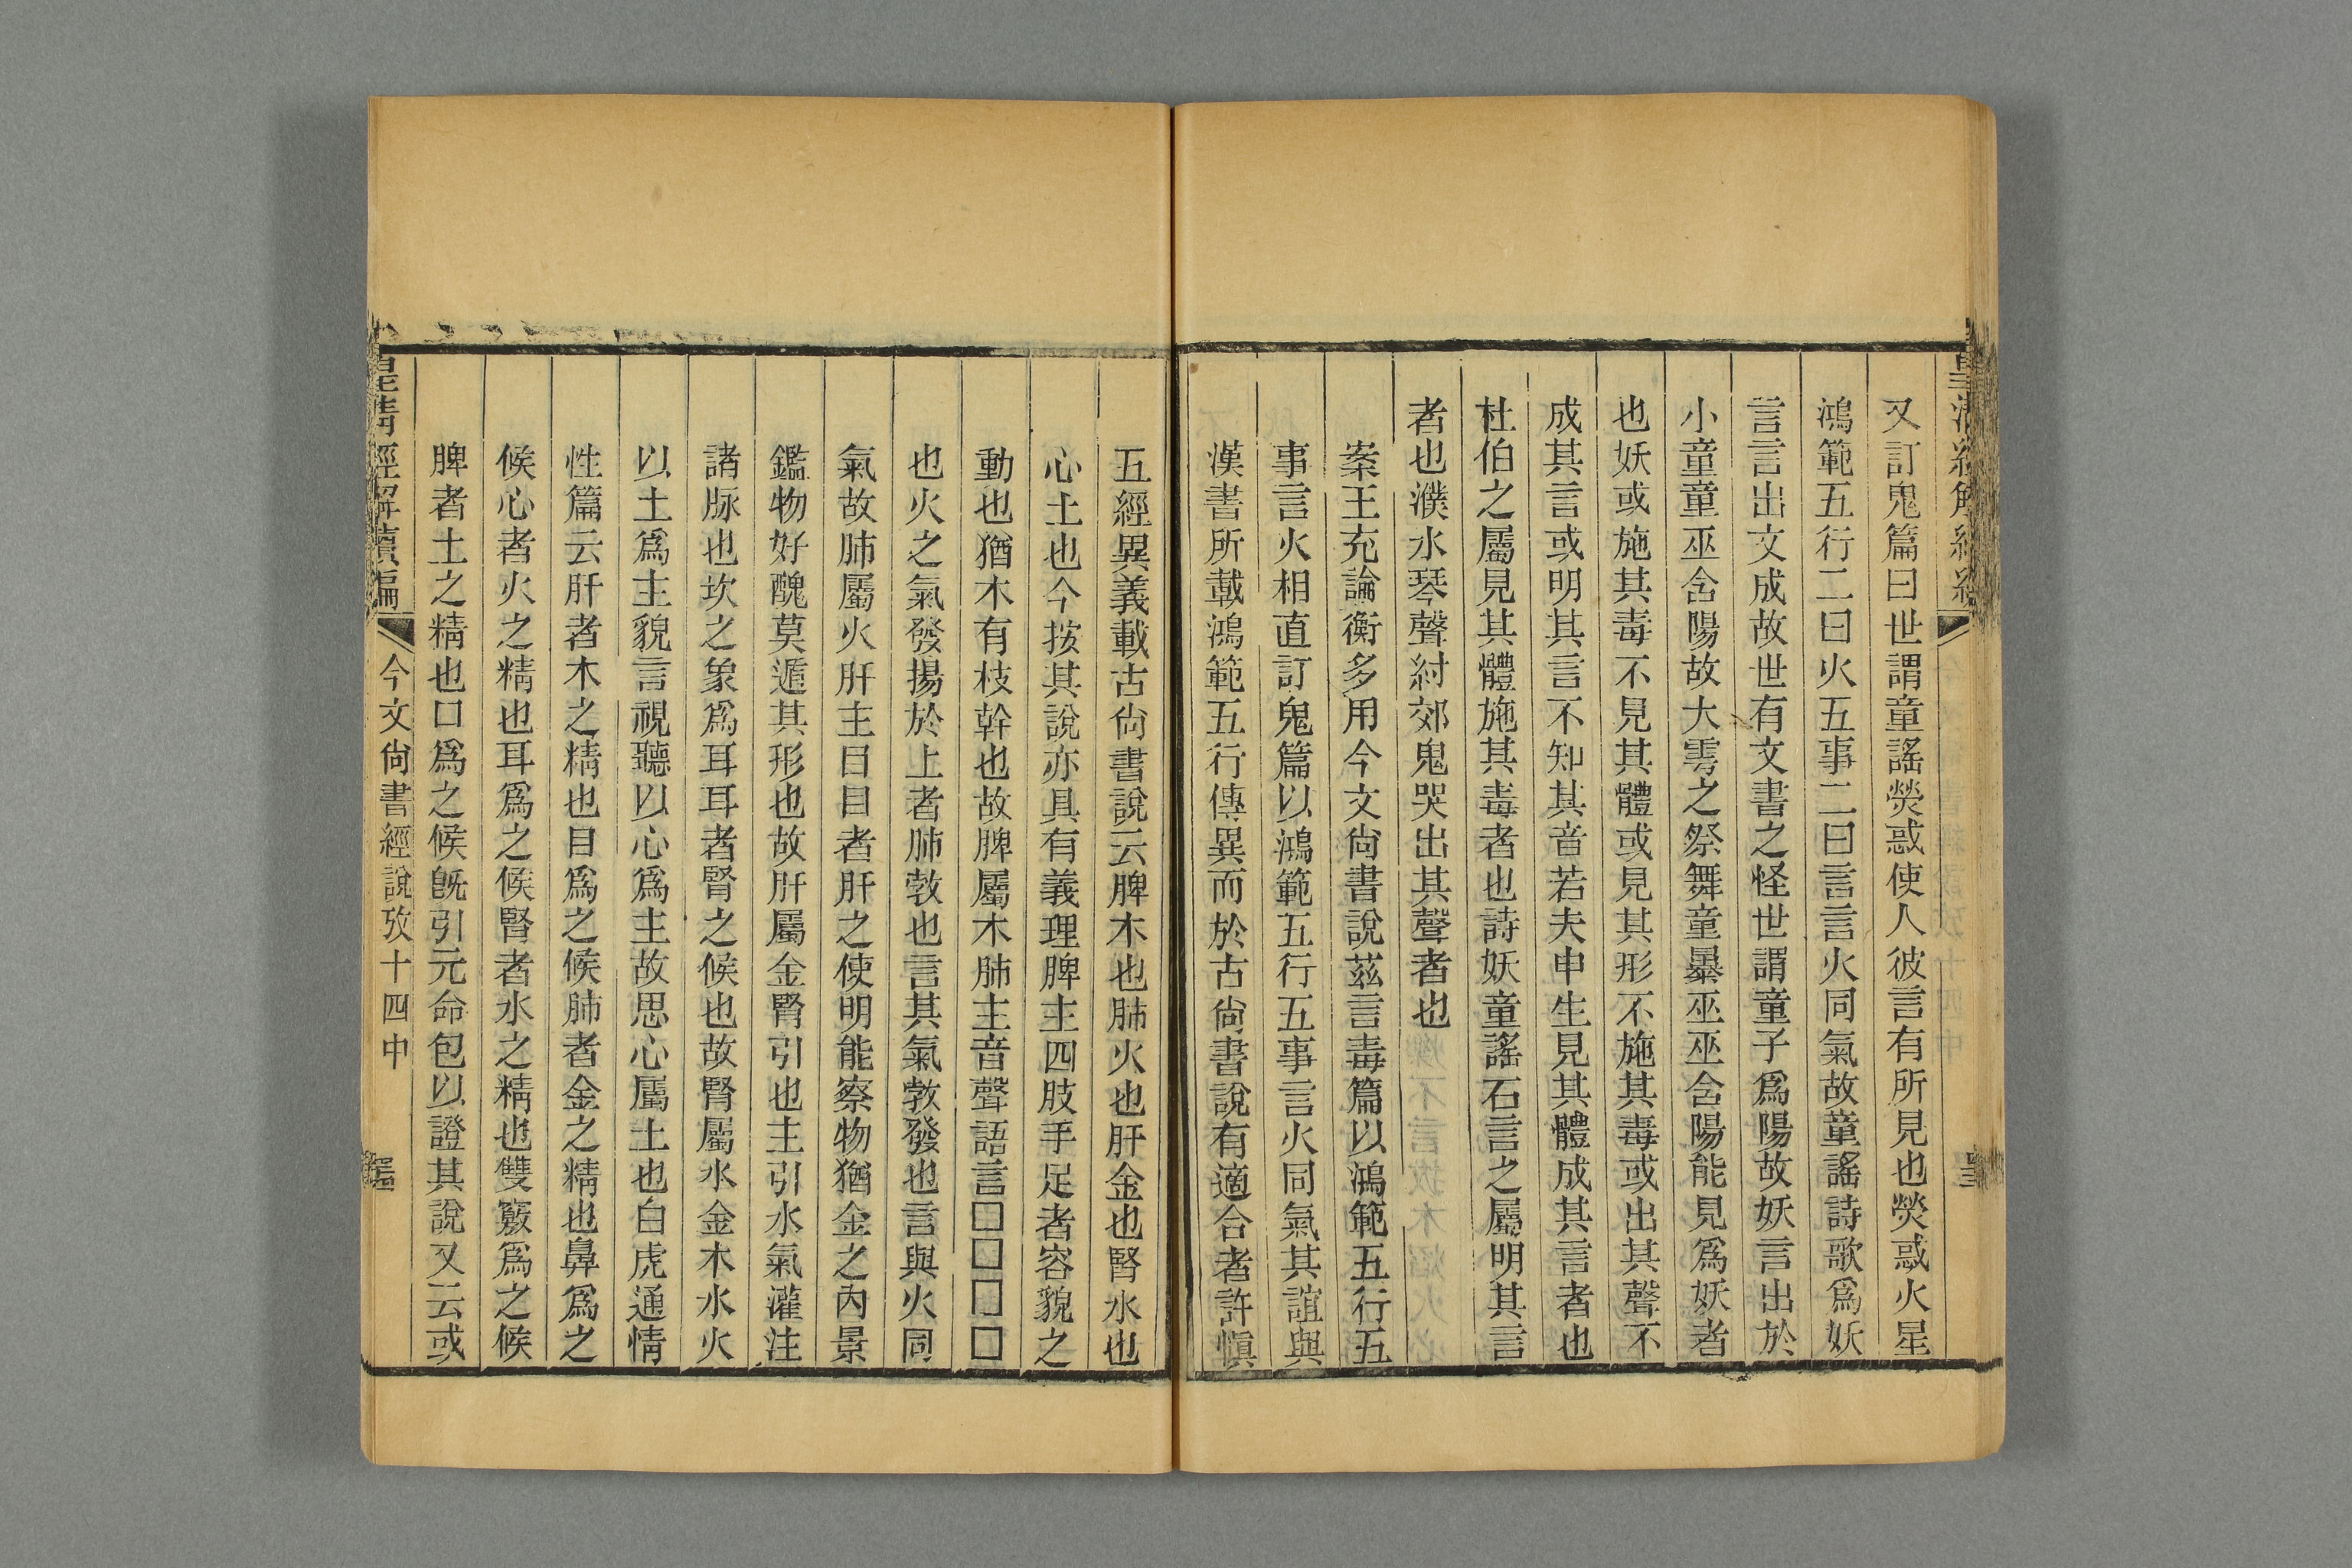 又訂鬼篇曰世謂童謠熒惑使人彼言有所見也熒惑火星
鴻範五行二曰火五事二曰言言火同氣故童謠詩歌爲妖
言言出文成故世有文書之怪世謂童子爲陽故妖言出於
小童童巫含陽故大雩之祭舞童暴巫巫含陽能見爲妖者
也妖或施其毒不見其體或見其形不施其毒或出其聲不
成其言或明其言不知其音若夫申生見其體成其言者也
杜伯之屬見其體施其毒者也詩妖童謠石言之屬明其言
者也濮水琴聲紂郊鬼哭出其聲者也
案王充論衡多用今文尙書說茲言毒篇以鴻範五行五
事言火相直訂鬼篇以鴻範五行五事言火同氣其誼與
漢書所載鴻範五行傳異而於古尙書說有適合者許愼
五經異義載古尙書說云脾木也肺火也肝金也腎水也
心土也今按其說亦具有義理脾主四肢手足者容貌之
動也猶木有枝幹也故脾屬木肺主音聲語言□□□□
也火之氣發揚於上者肺敦也言其氣敦發也言與火同
氣故肺屬火肝主目目者肝之使明能察物猶金之內景
鑑物好醜莫遁其形也故肝屬金腎引也主引水氣灌注
諸脉也坎之象爲耳耳者腎之候也故腎屬水金木水火
以土爲主貌言視聽以心爲主故思心屬土也白虎通情
性篇云肝者木之精也目爲之候肺者金之精也鼻爲之
候心者火之精也耳爲之候腎者水之精也雙竅爲之候
脾者土之精也口爲之候旣引元命包以證其說又云或
皇清經解續編
今文尙書經說攷十四中